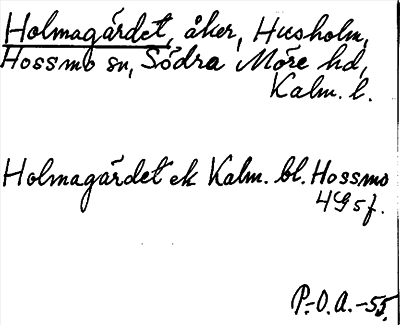 Holmagärdet, åker, Husholm,
Hossmo sn, Södra Möre hd,
Kalm. l.
Holmagärdet ek Kalm. bl. Hossmo
4G5f.
P.-O.A.-55.